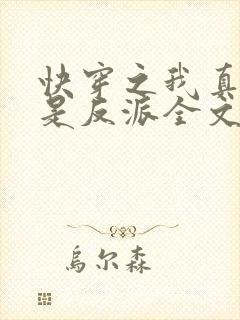 快穿之我真
是反派全文
乌尔森